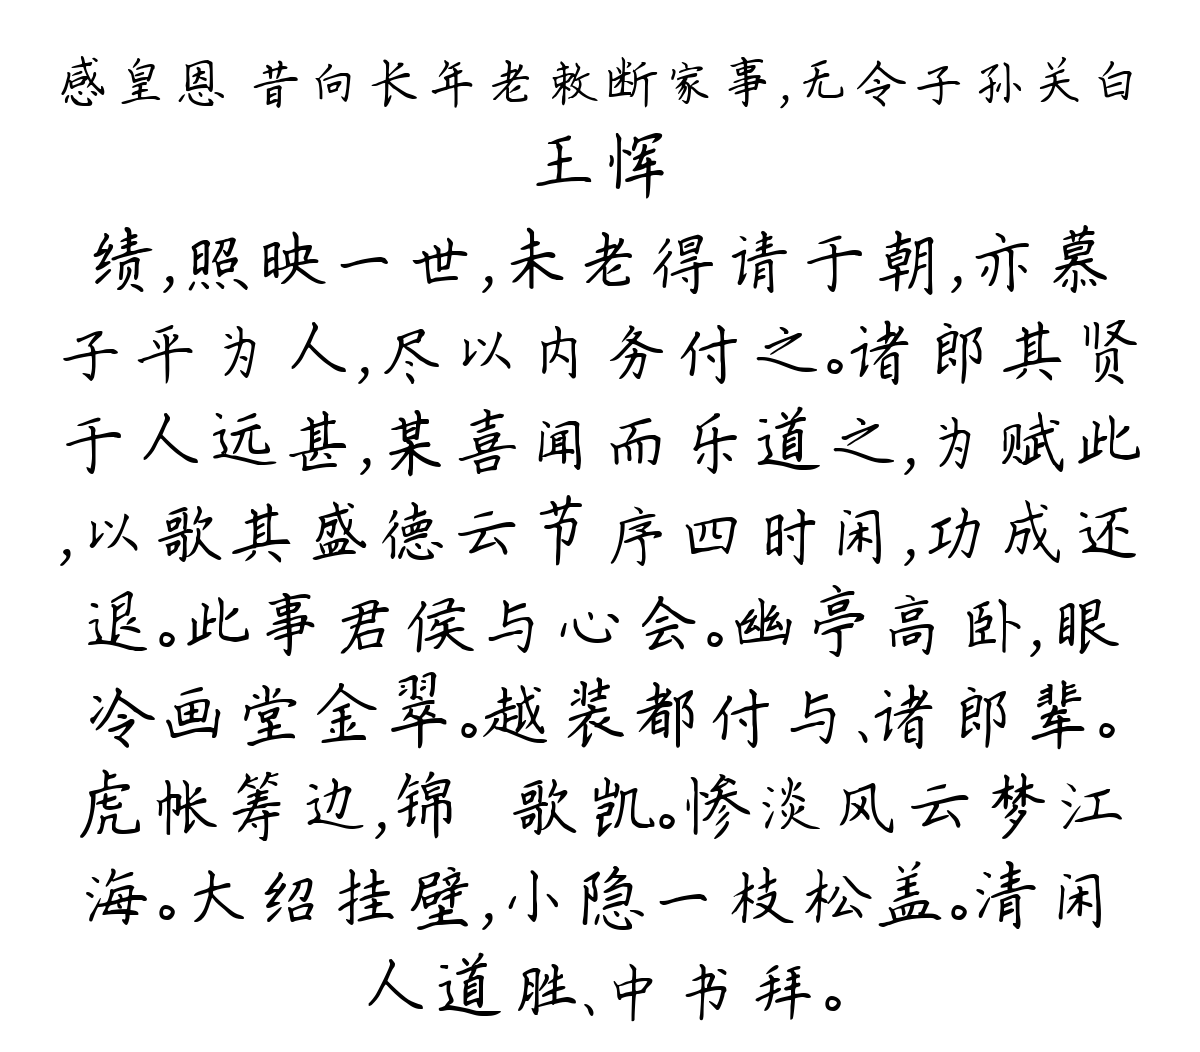 感皇恩 昔向长年老敕断家事,无令子孙关白
王恽
绩,照映一世,未老得请于朝,亦慕
子平为人,尽以内务付之。诸郎其贤
于人远甚,某喜闻而乐道之,为赋此
,以歌其盛德云节序四时闲,功成还
退。此事君侯与心会。幽亭高卧,眼
冷画堂金翠。越装都付与、诸郎辈。
虎帐筹边,锦 歌凯。惨淡风云梦江
海。大绍挂壁,小隐一枝松盖。清闲
人道胜、中书拜。